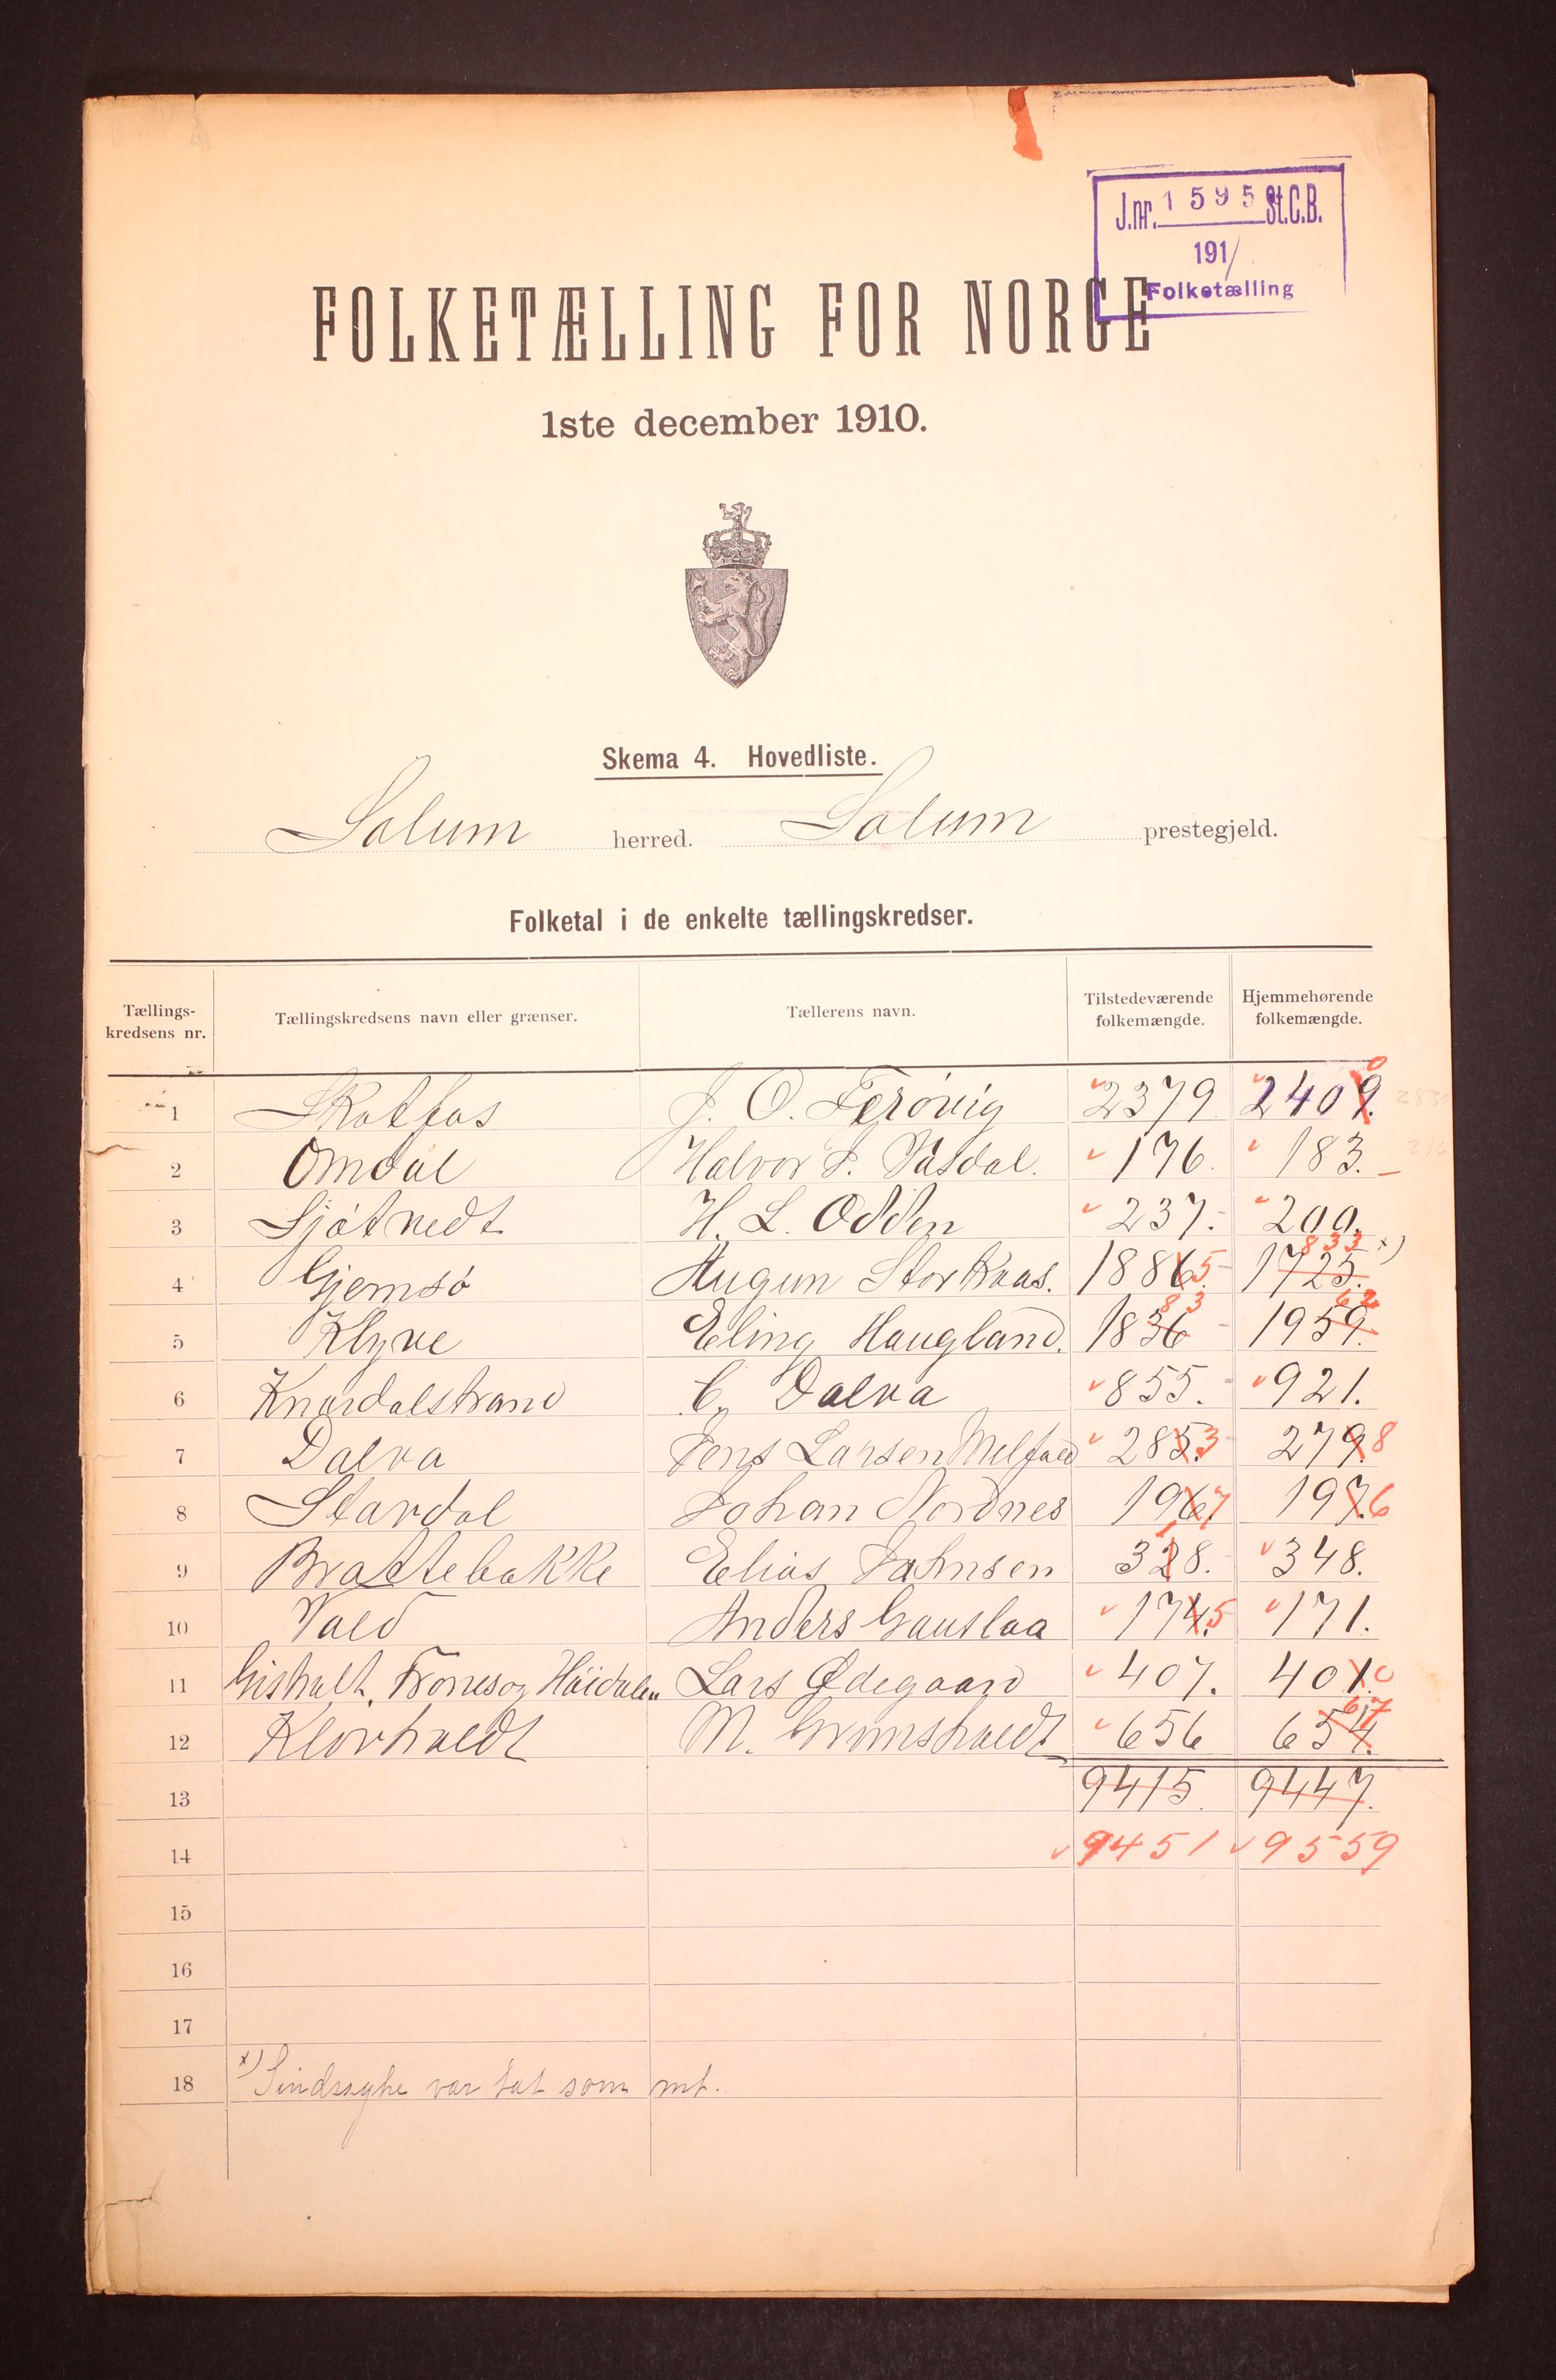 J.nr. 1595 St.C.B.
191/
Folketælling
FOLKETÆLLING FOR NORGE
1ste december 1910.
Skema 4. Hovedliste.
Solum herred. Solum prestegjeld.
Folketal i de enkelte tællingskredser.
Tællings-kredsens nr. Tællingskredsens navn eller grænser. Tællerens navn. Tilstedeværende folkemængde. Hjemmehørende folkemængde.
1 Skotfos J. O. Terövig 2379 2409. 0
2 Omdal Halvor J. Aasdal. 176. 183.
3 Sjötvedt H. L. Odden 237. 200.
4 Gjemsö Augun Storkaas. 1886. 5 1725. 833 x)
5 Klyve Eling Haugland. 1836 83 1959. 62
6 Knardalstrand C. Dalva 855. 921.
7 Dalva Jens Larsen Melfald 285. 3 279. 8
8 Stavdal Johan Nordnes 196. 7 197. 6
9 Brattebakke Elias Johnsen 328. 1 348.
10 Vald Anders Gauslaa 174. 5 171.
11 Gisholt, Frones og Höidalen Lars Ødegaard 407. 401. 0
12 Klovholdt M. Grimsholdt 656 654. 67
13 9415. 9447.
14 9451 9559
15
16
17
18 x) Sindssyke var tat som mt.